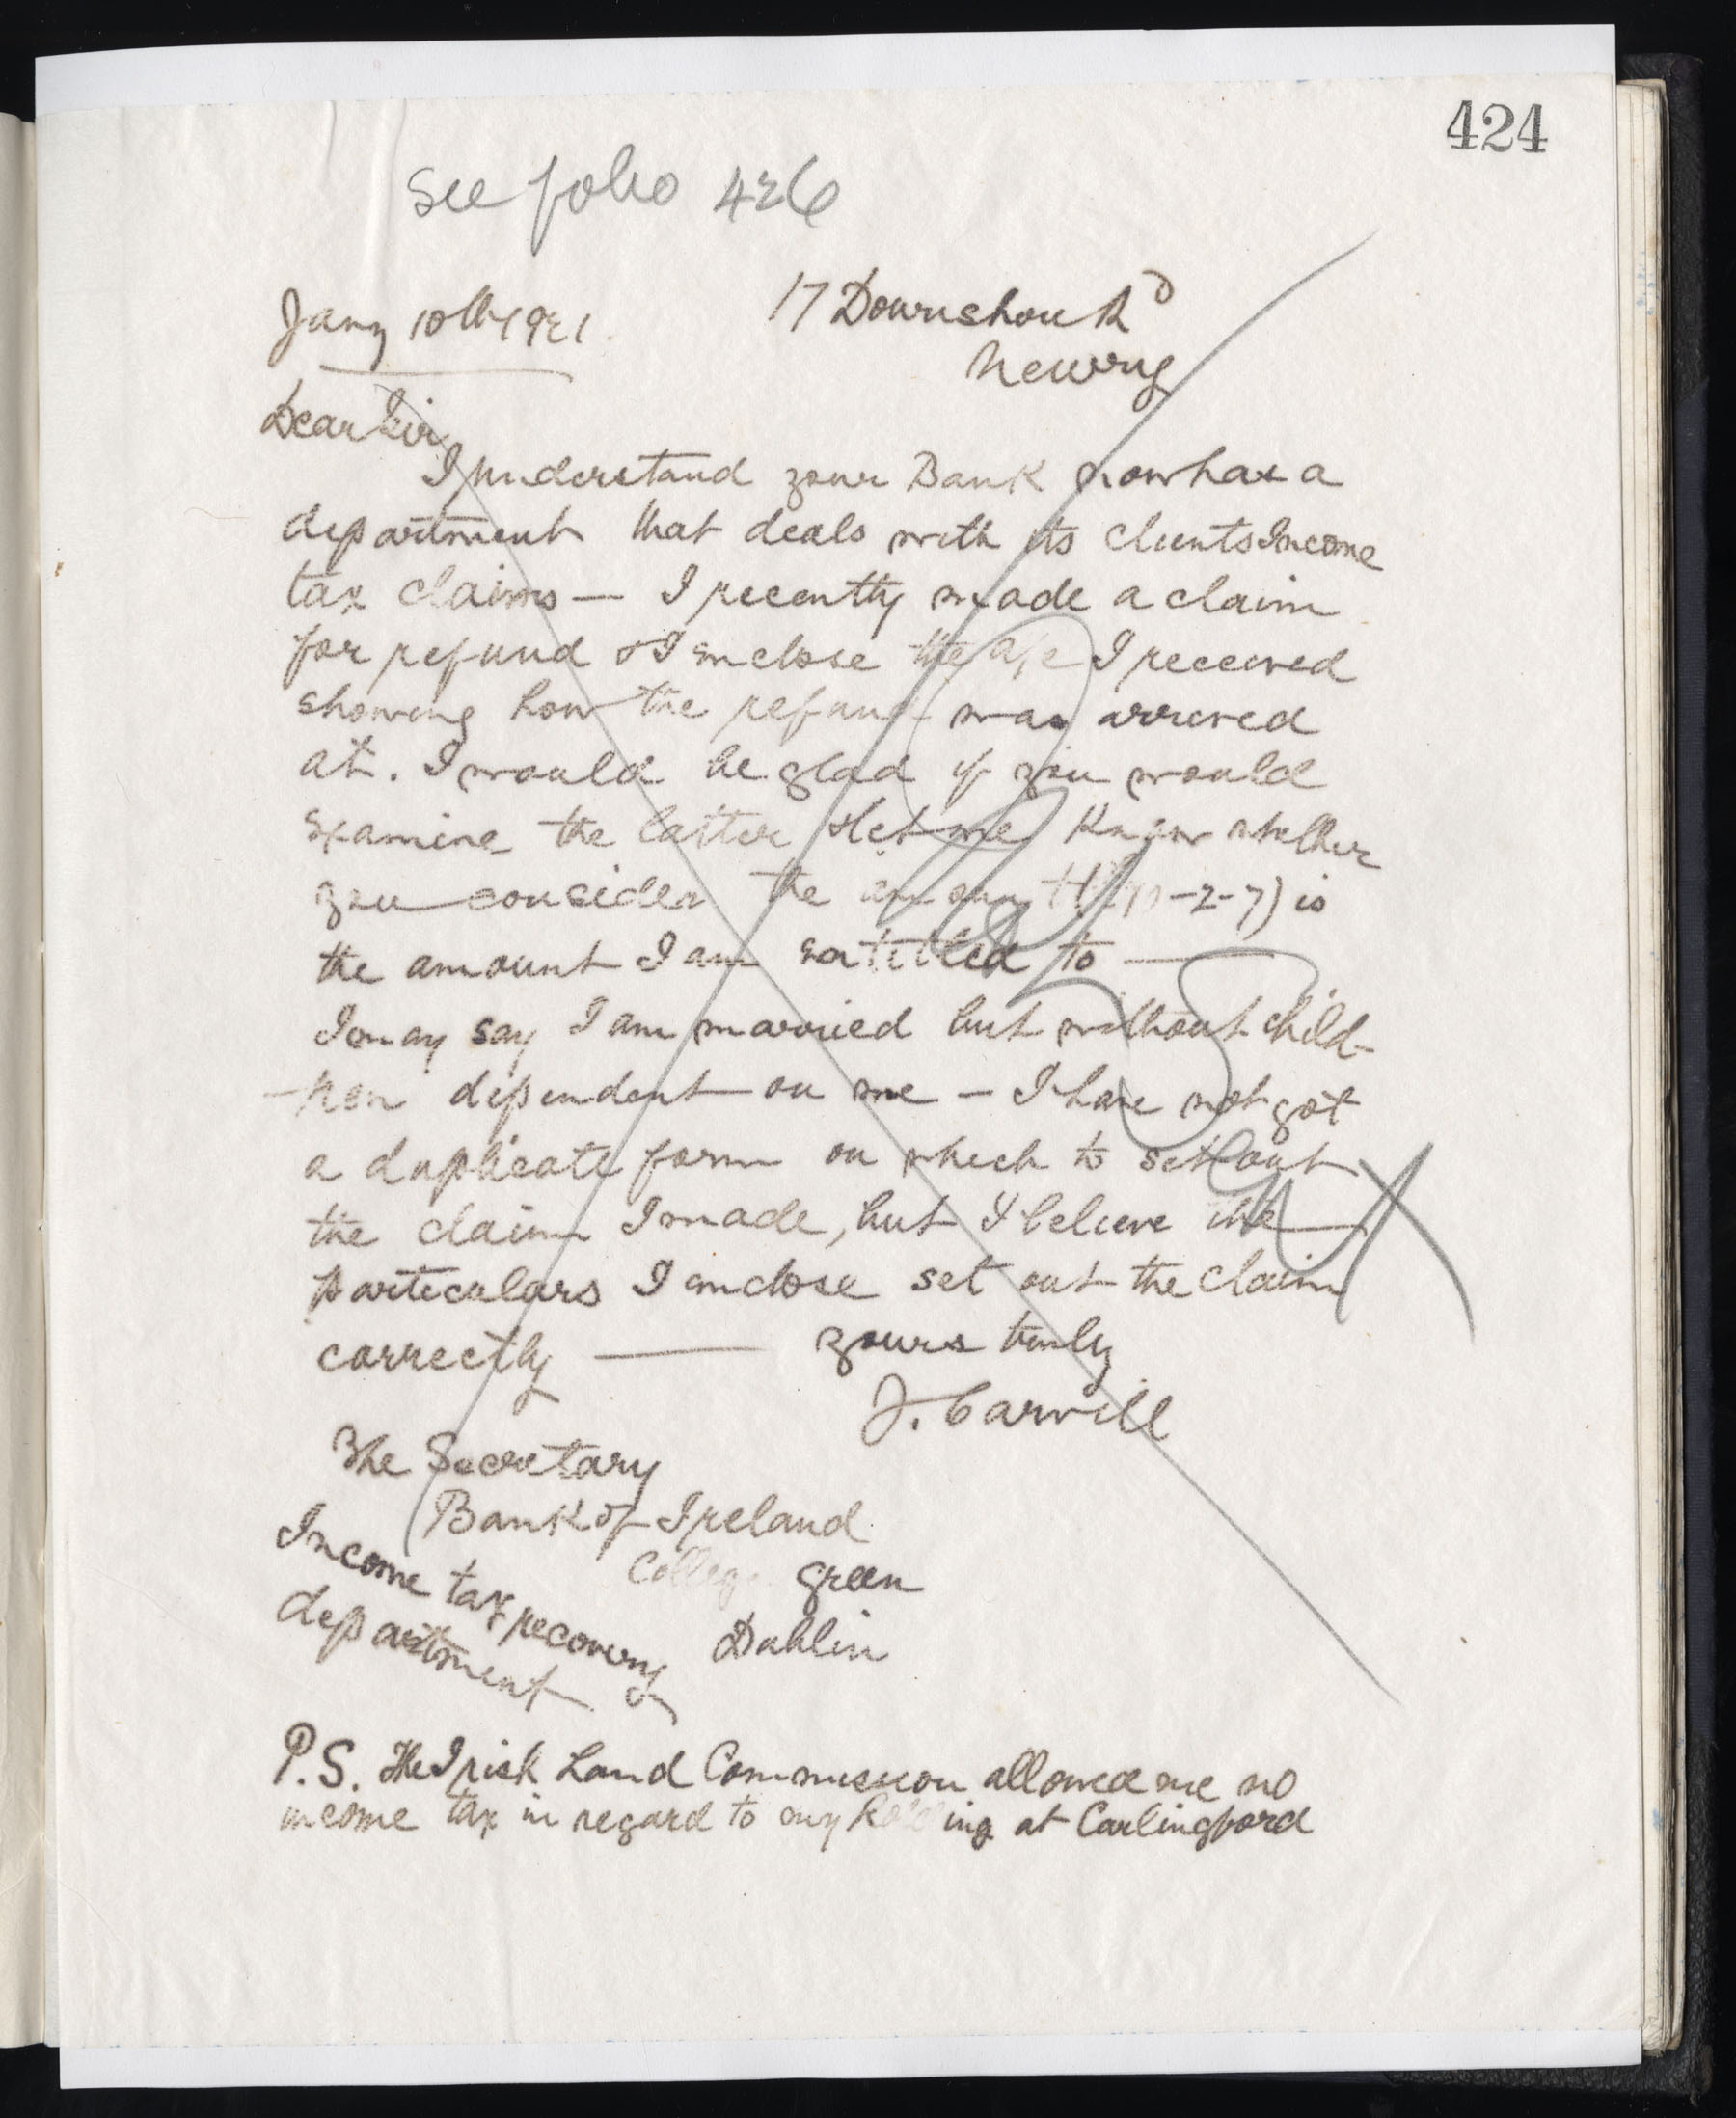 424
See folio 426
Jany 10th 1921. 17 Downshou Rd
Newry
Dear Sir
I understand your Bank now has a
department that deals with its clients Income
tax claims — I recently made a claim
for refund & I enclose the a/c I received
showing how the refund was arrived
at. I would be glad if you would
examine the latter & let me know whether
you consider the amount -2-7) is
the amount I am entitled to —
I may say I am married but without child-
-ren dependent on me — I have not got
a duplicate form on which to set out
the claim I made, but I believe the
particulars I enclose set out the claim
correctly — yours truly
J. Carvill
The Secretary
Bank of Ireland
College Green
Dublin
Income tax recovery
department
P.S. The Irish Land Commission allowed me no
income tax in regard to my holding at Carlingford